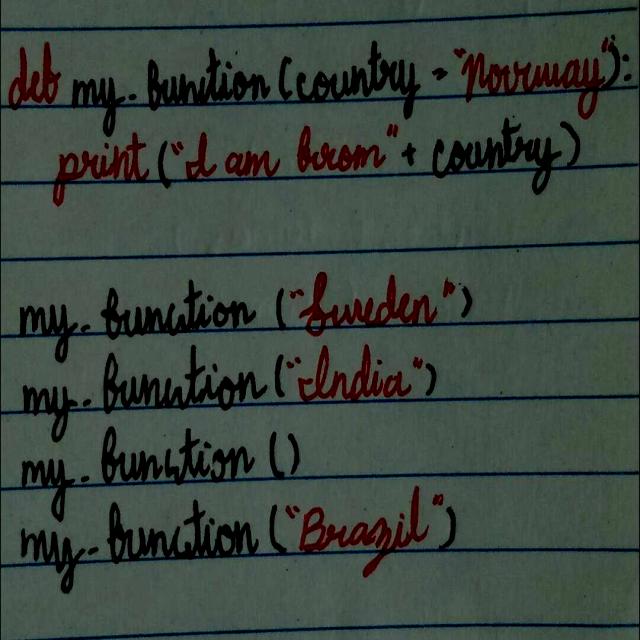 def my_function(country = "Norway"):
print("I am from" + country)
my_function("Sweden")
my_function("India")
my_function()
my_function("Brazil")